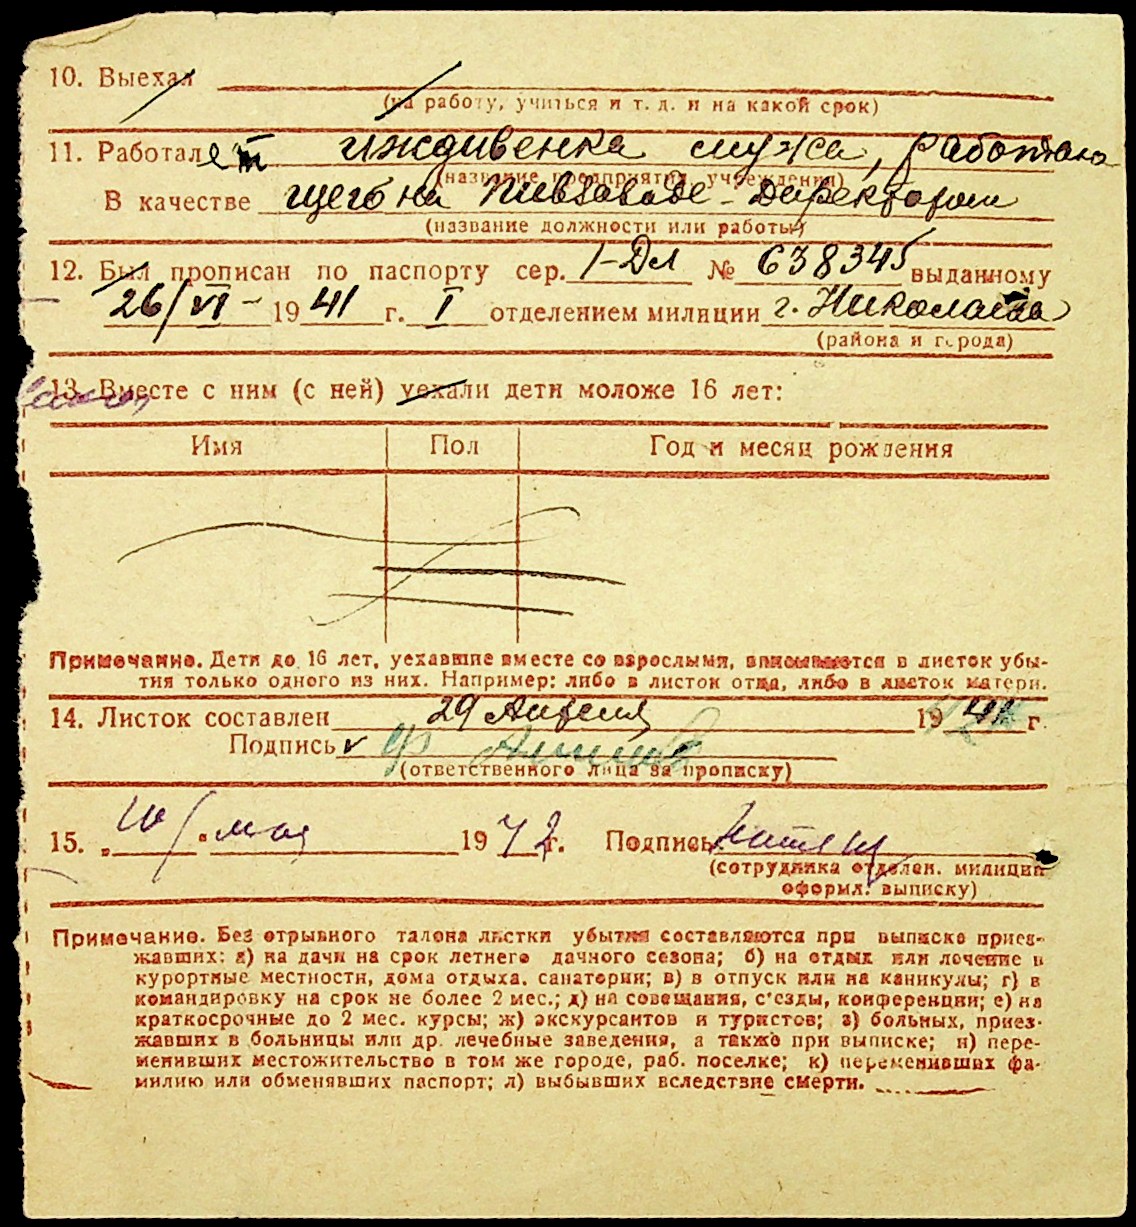 10. Выехал
(на работу, учиться и т. д. и на какой срок)
11. Работает иждивенка мужа, работаю
(название предприятия, учреждения)
В качестве щего на Пивзаводе - Директором
(название должности или работы)
12. Был прописан по паспорту сер. 1-Дл № 638345 выданному
26/VI- 1941 г. I отделением милиции г. Николаева
(района и города)
13. Вместе с ним (с ней) уехали дети моложе 16 лет:
Имя Пол Год и месяц рождения
Примечание. Дети до 16 лет, уехавшие вместе со взрослыми, вписываются в листок убы-
тия только одного из них. Например: либо в листок отца, либо в листок матери.
14. Листок составлен 29 Апреля 19 г.
Подпись
(ответственного лица за прописку)
15. „10" мая 1942 г. Подпись
(сотрудника отделен. милиции
оформл. выписку)
Примечание. Без отрывного талона листки убытия составляются при выписке приез-
жавших: а) на дачи на срок летнего дачного сезона; б) на отдых или лечение в
курортные местности, дома отдыха, санатории; в) в отпуск или на каникулы; г) в
командировку на срок не более 2 мес.; д) на совещания, с'езды, конференции; е) на
краткосрочные до 2 мес. курсы; ж) экскурсантов и туристов; з) больных, приез-
жавших в больницы или др. лечебные заведения, а также при выписке; и) пере-
менивших местожительство в том же городе, раб. поселке; к) переменивших фа-
милию или обменявших паспорт; л) выбывших вследствие смерти.